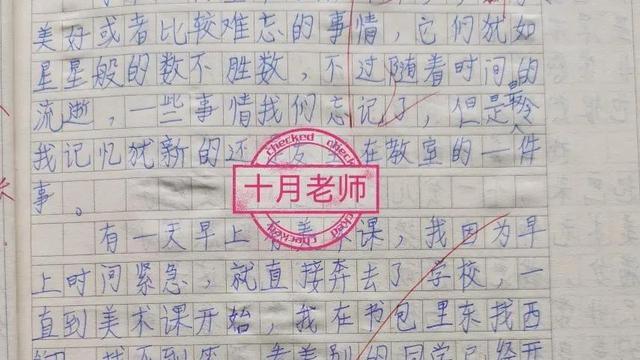 美好或者比较难忘的事情,它们犹如
星星般的数不胜数,不过随着时间的
流逝,一些事情我们忘记了,但是最令人
我记忆犹新的还是发生在教室的一件
事。
有一天早上有美术课,我因为早
上时间紧急,就直接奔去了学校,一
直到美术课开始,我在书包里东找西
看别的同学已经开
checked
十月老师
checked